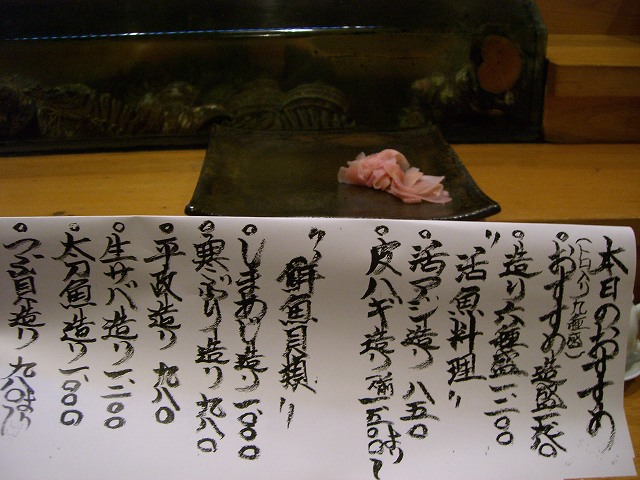 本日のおすすめ
(一人入り九種盛)
おすすめ造盛一、九八〇
造り六種盛一、二〇〇
〃活魚料理〃
活アジ造り 八五〇
皮ハギ造り 一、五〇〇より
〃鮮魚貝類〃
しまあじ造り 一、〇〇〇
寒ぶり造り 九八〇
平政造り 九八〇
生サバ造り 一、二〇〇
太刀魚造り 一、〇〇〇
つぶ貝造り 九八〇より